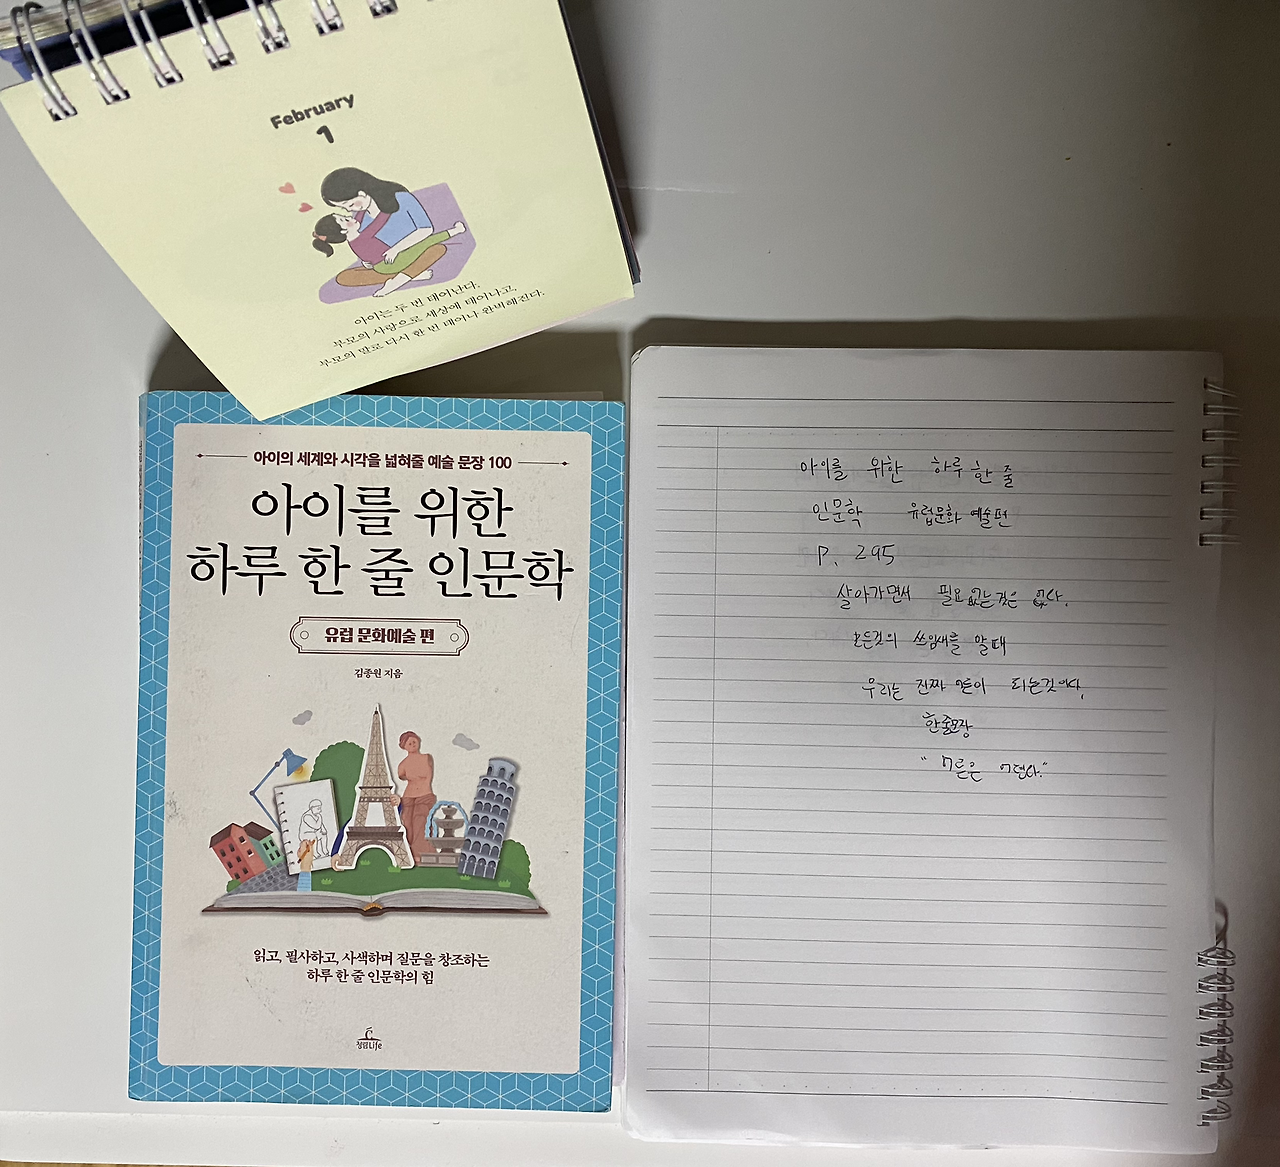 February
1
아이는 두 번 태어난다.
부모의 사랑으로 세상에 태어나고,
부모의 말로 다시 한 번 태어나 완벽해진다.
아이의 세계와 시각을 넓혀줄 예술 문장 100
아이를 위한
하루 한 줄 인문학
유럽 문화예술 편
김종원 지음
읽고, 필사하고, 사색하며 질문을 창조하는
하루 한 줄 인문학의 힘
청림Life
아이를 위한 하루 한 줄
인문학 유럽문화 예술편
P. 295
살아가면서 필요없는것은 없다.
모든것의 쓰임새를 알때
우리는 진짜 이 되는것이다.
한줄문장